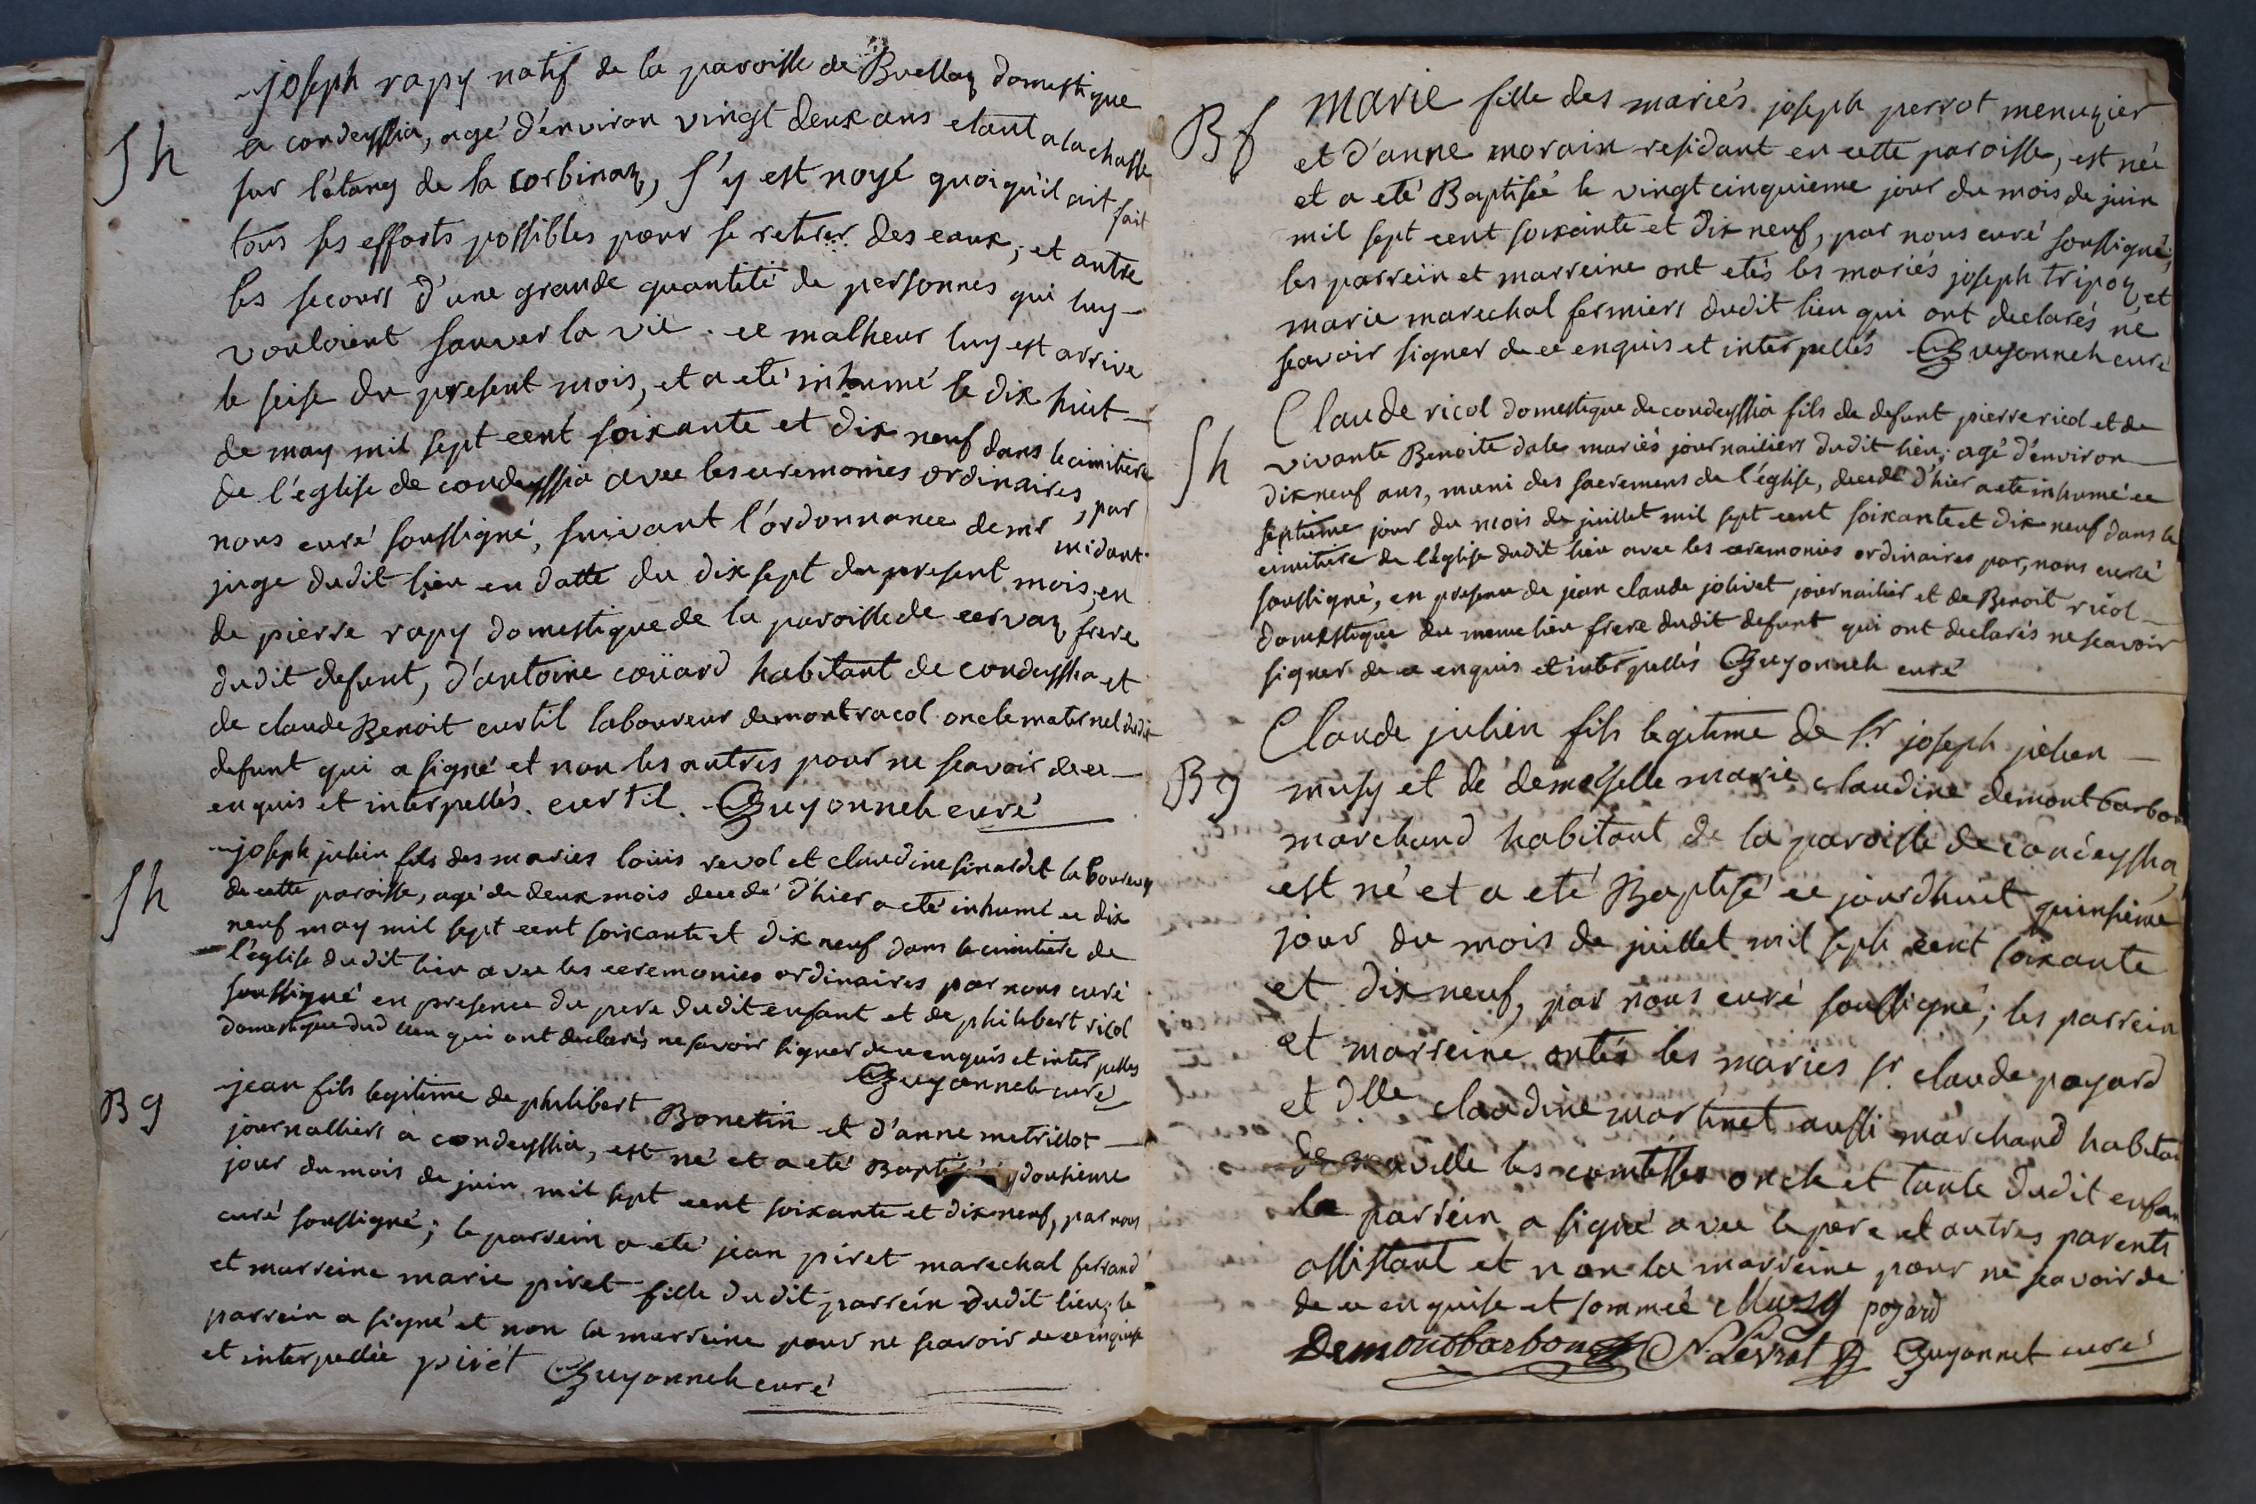 joseph rapy natif de la paroisse de Buellaz domestique
Sh
a condeyssia, agé d'environ vingt deux ans etant a la chasse
sur l'étang de la corbinaz, s'y est noyé quoiqu'il ait fait
tous ses efforts possibles pour se retirer des eaux, et autre
les secours d'une grande quantité de personnes qui luy
vouloient sauver la vie. ce malheur luy est arrive
le seise du present mois, et a eté inhumé le dix huit
de may mil sept cent soixante et dix neuf dans le cimitiere
de l'eglise de condeyssia avec les ceremonies ordinaires, par
nous curé soussigné, suivant l'ordonnance de mr midant
juge dudit lieu en datte du dix sept du present mois, en
de pierre rapy domestique de la paroisse de cervaz frere
dudit defunt, d'antoine coüard habitant de condeyssia et
de claude Benoit curtil laboureur de montracol oncle maternel dudit
defunt qui a signé et non les autres pour ne scavoir de ce
enquis et interpellés. curtil. Guyonneh curé
Sh
joseph julien fils des maries louis revol et claudine sinardet laboureurs
de cette paroisse, agé de deux mois decedé d'hier a eté inhumé ce dix
neuf may mil sept cent soixante et dix neuf dans le cimitiere de
l'église dudit lieu avec les ceremonies ordinaires par nous curé
soussigné en presence du pere dudit enfant et de philibert ricol
domestique dud lieu qui ont declarés ne savoir signer de ce enquis et interpellés
Guyonneh curé
Bg
jean fils legitime de philibert Bonetin et d'anne metrillot
journalliers a condeyssia, est né et a eté Baptisé douzieme
jour du mois de juin mil sept cent soixante et dix neuf, par nous
curé soussigné; le parrein a eté jean piret marechal ferrand
et marreine marie piret fille dudit parrein dudit lieu, le
parrein a signé et non la marreine pour ne scavoir de ce enquise
et interpellée piret Guyonneh curé
Bf
Marie fille des mariés joseph perrot menuzier
et d'anne morain residant en cette paroisse, est née
et a eté Baptisée le vingt cinquieme jour du mois de juin
mil sept cent soixante et dix neuf, par nous curé soussigné;
les parrein et marreine ont etés les mariés joseph tripoz et
marie marechal fermiers dudit lieu qui ont declarés ne
scavoir signer de ce enquis et interpellés Guyonneh curé
Sh
Claude ricol domestique de condeyssia fils de defunt pierre ricol et de
vivante Benoite dales mariés journailiers dudit lieu, agé d'environ
dix neuf ans, muni des sacremens de l'église, decedé d'hier a eté inhumé ce
septieme jour du mois de juillet mil sept cent soixante et dix neuf dans le
cimitiere de l'église dudit lieu avec les ceremonies ordinaires par, nous curé
soussigné, en presence de jean claude jolivet journailier et de Benoit ricol
domestique du meme lieu frere dudit defunt qui ont declarés ne scavoir
signer de ce enquis et interpellés Guyonneh curé
Bg
Claude julien fils legitime de Sr joseph julien
musy et de demoiselle marie claudine demontbarbon
marchand habitant de la paroisse de condeyssia,
est né et a eté Baptisé ce jourdhuit quinsieme
jour du mois de juillet mil sept cent soixante
et dix neuf, par nous curé soussigné; les parrein
et marreine ontés les maries sr claude poyard
et dlle claudine martinet aussi marchand habitan
de maville les comtesses oncle et tante dudit enfan
le parrein a signé avec le pere et autres parents
assistant et non la marreine pour ne scavoir de
de ce enquise et sommée Musy poyard
Demontbarbon Levrat Guyonnet curé